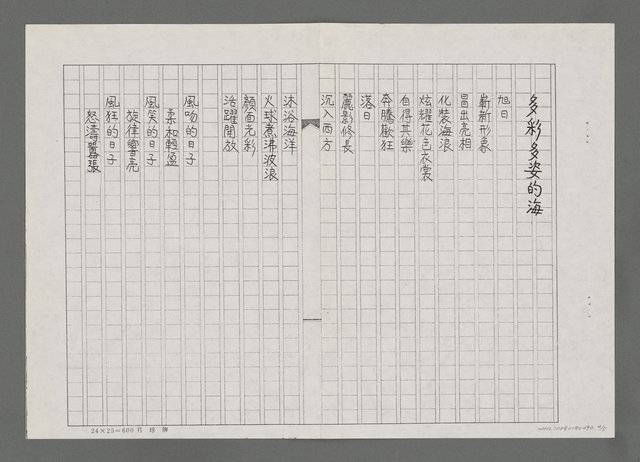 多彩多姿的海
旭日
嶄新形象
冒出亮相
化裝海浪
炫耀花色衣裳
自得其樂
奔騰歡狂
落日
麗影修長
沉入西方
沐浴海洋
火球煮沸波浪
顏面光彩
活躍開放
風吻的日子
柔和輕盈
風笑的日子
旋律響亮
風狂的日子
怒濤囂張
24×25=600 月球牌